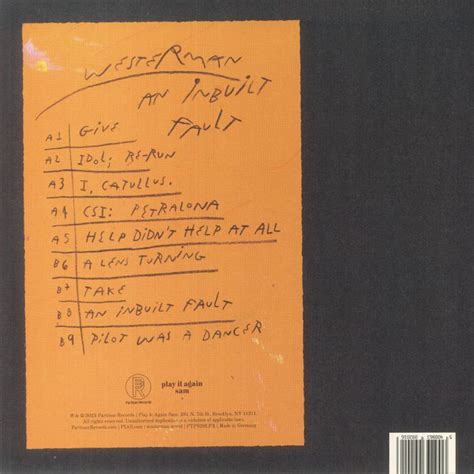 WESTERMAN
AN INBUILT
FAULT
A1 GIVE
A2 IDOL; RE-RUN
A3 I, CATULLUS.
A4 CSI: PETRALONA
A5 HELP DIDN'T HELP AT ALL
B6 A LENS TURNING
B7 TAKE
B8 AN INBUILT FAULT
B9 PILOT WAS A DANCER
play it again
sam
Partisan Records
℗ & © 2023 Partisan Records | Play It Again Sam. 281 N. 7th St. Brooklyn, NY 11211.
All rights reserved. Unauthorized duplication is a violation of applicable laws.
PartisanRecords.com | Made in Germany